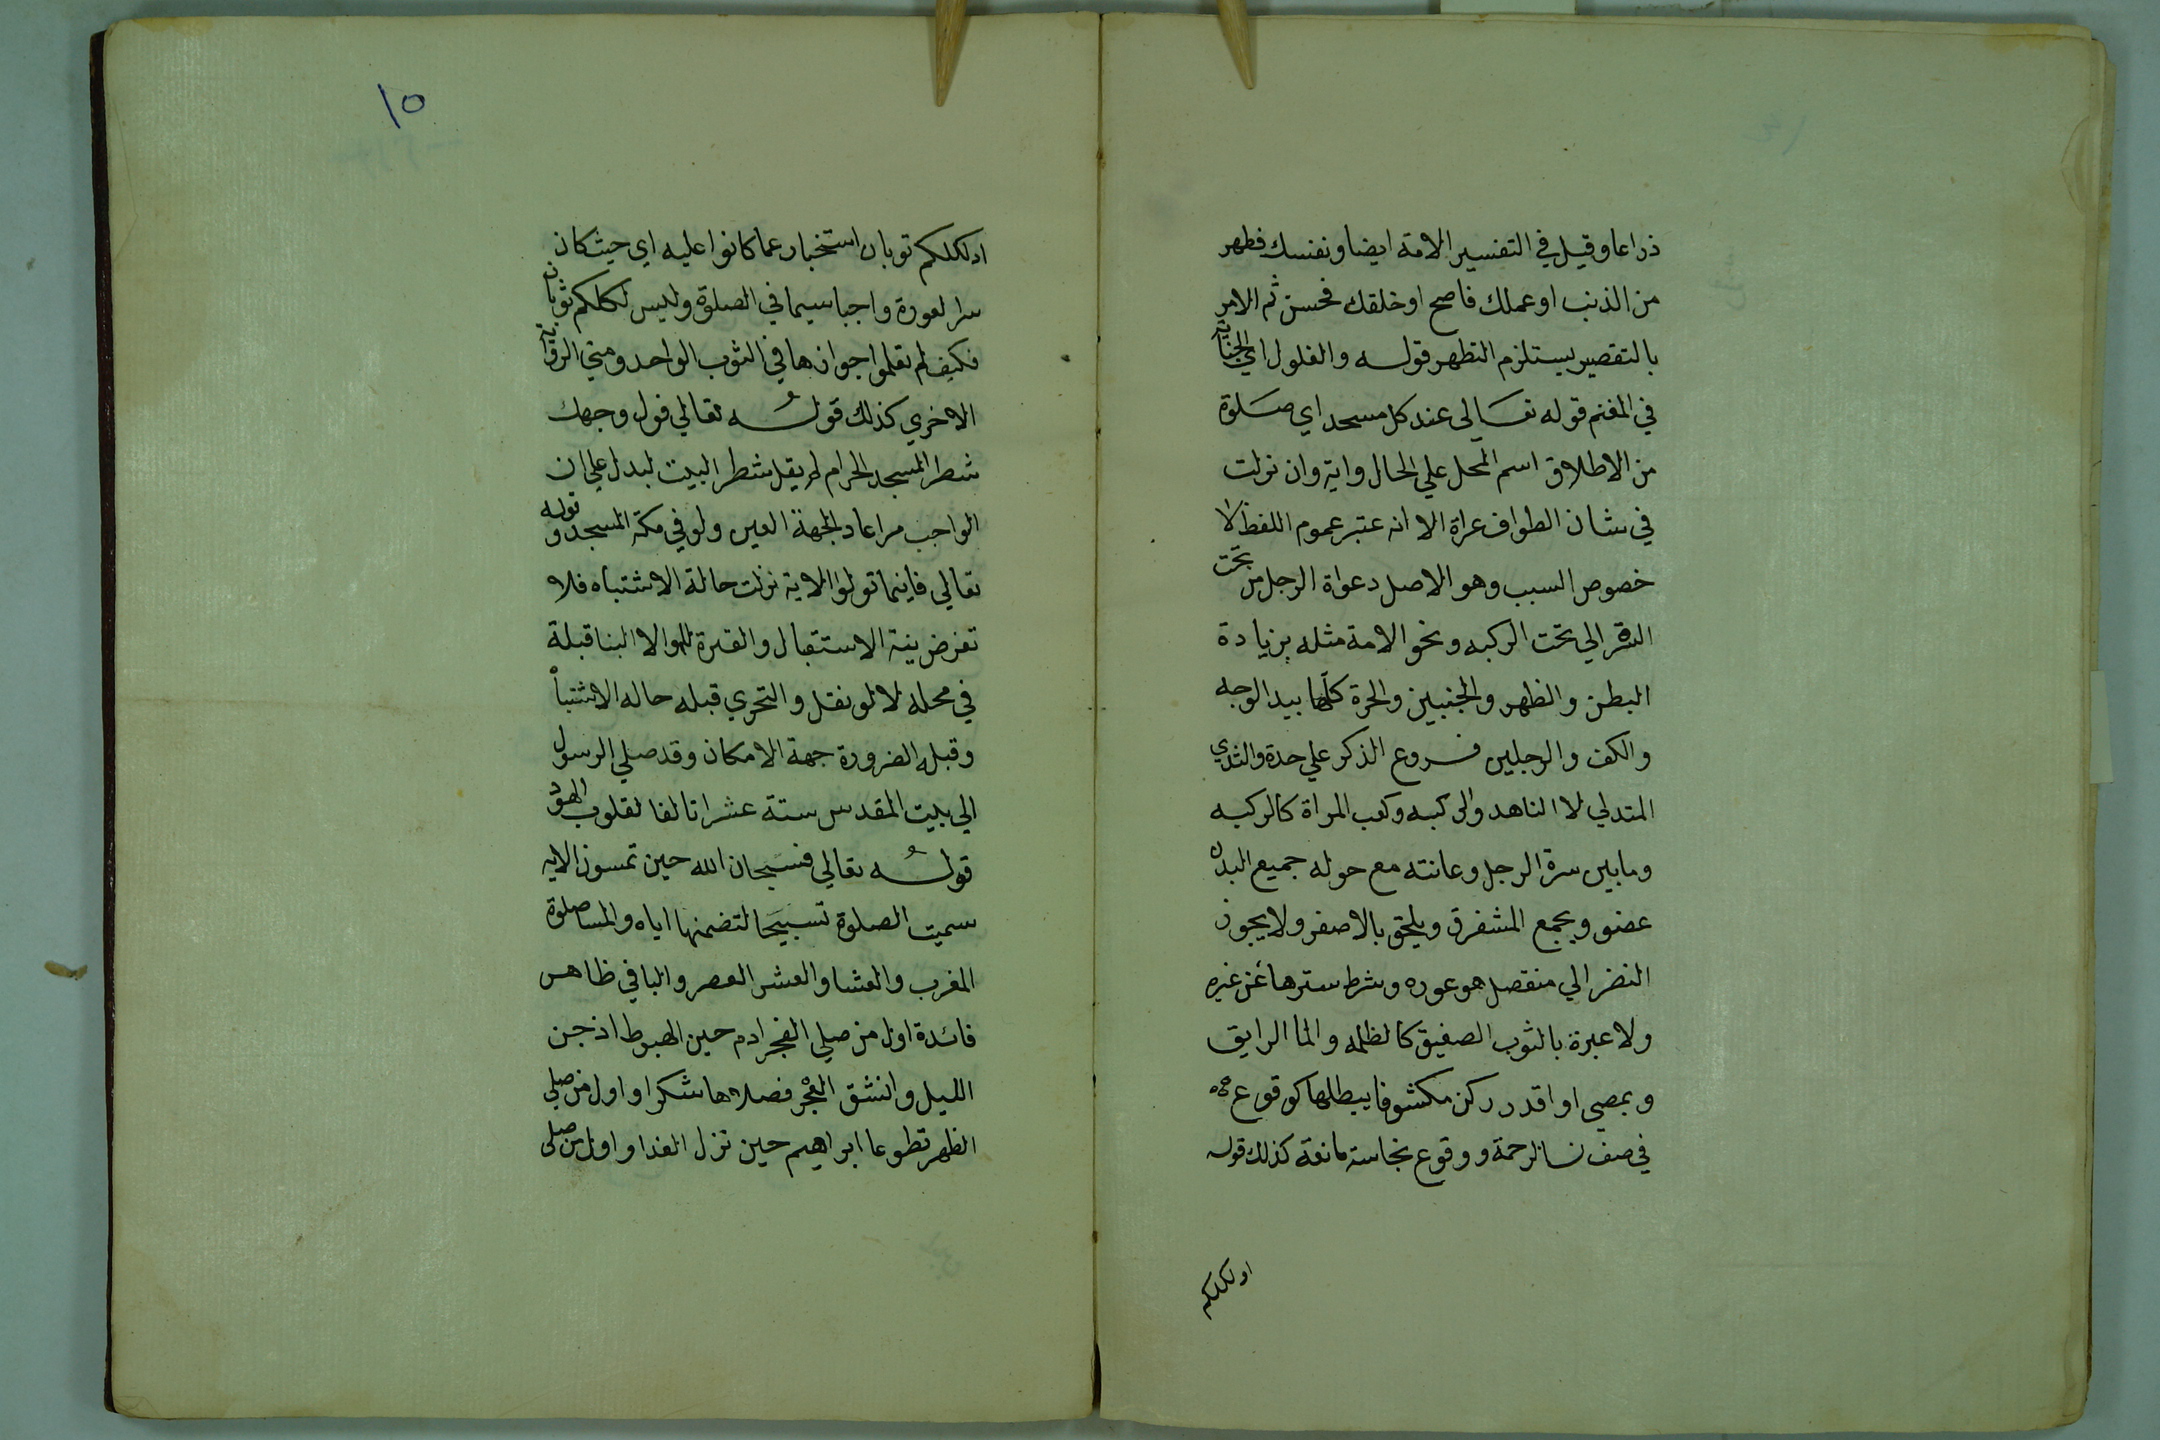 ذراعا وقيل في التفسير الامة ايضا ونفسك فطهر
من الذنب او عملك فاصح او خلقك فحسن ثم الامر
بالتقصير يستلزم التطهر قوله والغلول اي الجناية
في المغنم قوله تعالى عند كل مسجد اي صلوة
من الاطلاق اسم المحل علي الحال واية وان نزلت
في شان الطواف عراة الا انه عتبر عموم اللفظ لا
خصوص السبب وهو الاصل دعواة الرجل من تحت
السرة الي تحت الركبه ونحو الامة مثله بزيادة
البطن والظهر والجنبين والحرة كلها بيد الوجه
والكف والرجلين فروع الذكر علي حدة والثدي
المتدلي لا الناهد والركبه وكعب المراة كالركبه
وما بين سرة الرجل وعانته مع حوله جميع البدن
عضو ويجمع المتفرق ويلحق بالاصغر ولا يجوز
النضر الي منفصل هو عوره وشرط سترها عن غيره
ولا عبرة بالثوب الصفيق كالظلمه والما الرايق
وبمصي او اقدر ركن مكشوفا يبطلها كوقوع
في صف نسا لرحمة ووقوع نجاسة مانعة كذلك قوله
اولكلكم
١٥
اولكلكم توبان استخبار عما كانوا عليه اي حيث كان
ستر لعورة واجبا سيما في الصلوة وليس لكلكم ثوبان
فكيف لم تعلموا جوازها في الثوب الواحد ومتي الرقاية
الاخري كذلك قوله تعالي فول وجهك
شطر المسجد الحرام لم يقل شطر البيت ليدل علي ان
الواجب مراعاة الجهة العين ولو في مكة المسجد وقوله
تعالي فاينما تولوا الاية نزلت حالة الاشتباه فلا
تفرض ينة الاستقبال والقدرة للهوالا البنا قبلة
في محله لا لو نقل والتحري قبله حاله الاشتباه
وقبله الضرورة جهة الامكان وقد صلي الرسول
الي بيت المقدس ستة عشر اتالفا لقلوب اليهود
قوله تعالي فسبحان الله حين تمسون الايه
سميت الصلوة تسبيحا لتضمنها اياه والمسا صلوة
المغرب والعشا والعشر العصر والباقي ظاهر
فائدة اول من صلي الفجر ادم حين الهبوط اذ جن
الليل وانشق الفجر فصلاها شكرا واول من صلي
الظهر تطوعا ابراهيم حين نزل الفدا واول من صلي